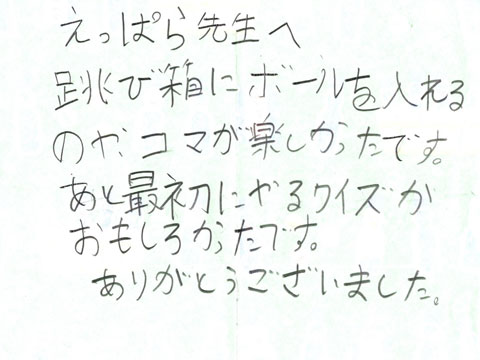 えっぱら先生へ
跳び箱にボールを入れる
のや、コマが楽しかったです。
あと最初にやるクイズが
おもしろかったです。
ありがとうございました。